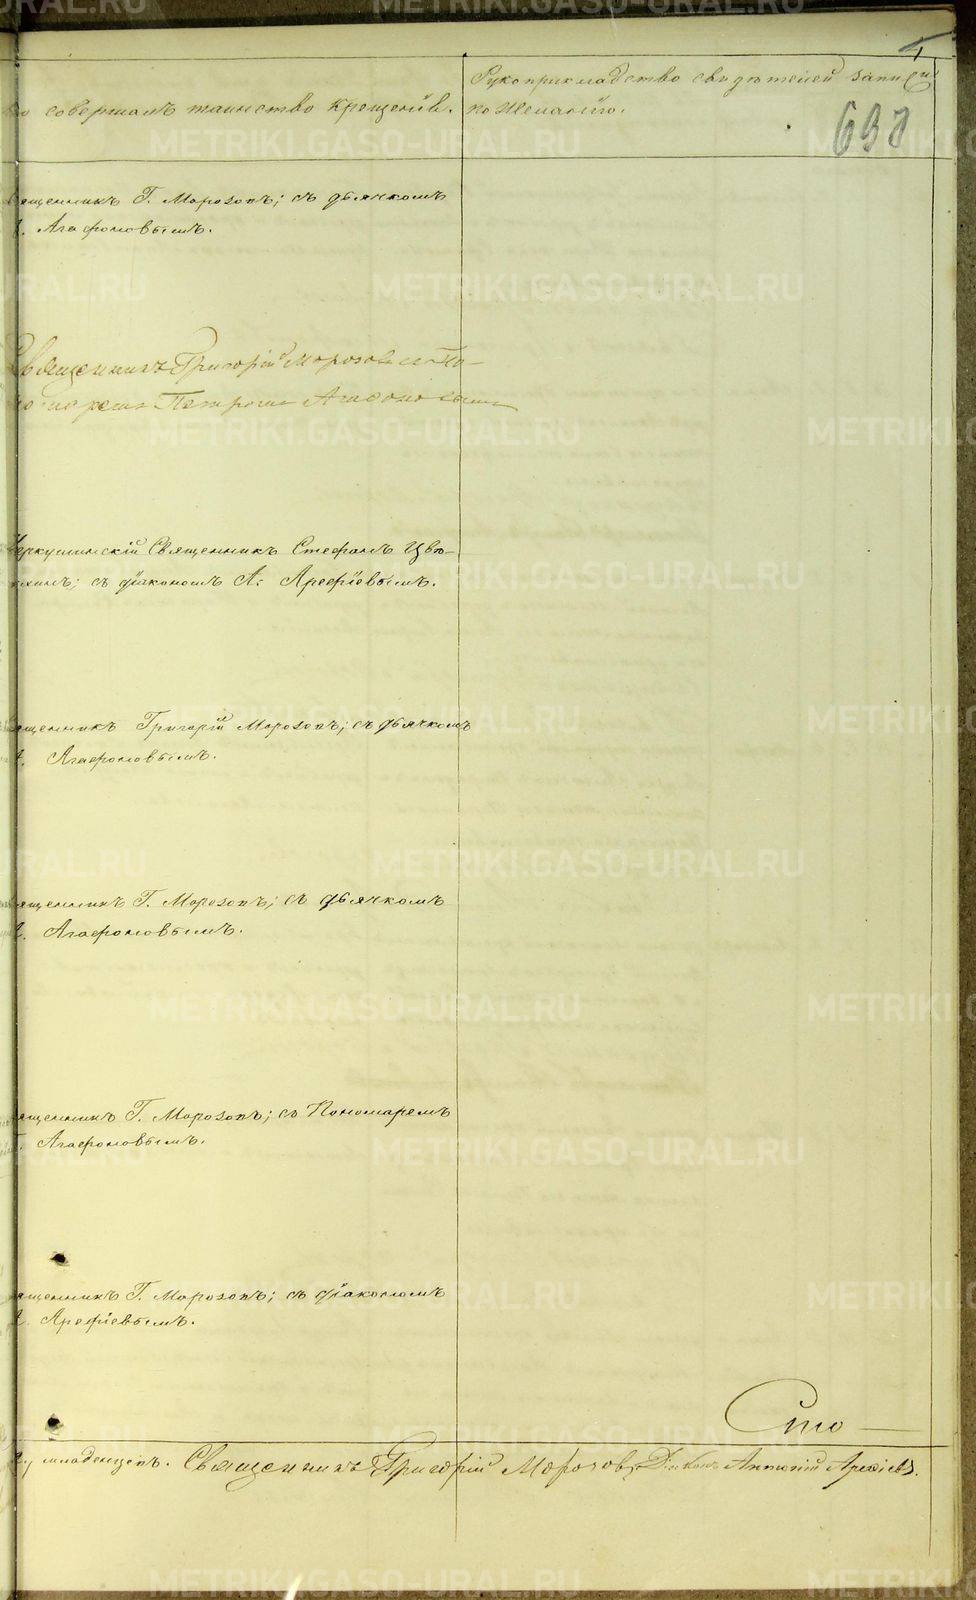 Рукоприкладство свидѣтелей записи
по желанію.
совершалъ таинство крещенія.
698
ященникъ Г. Морозовъ; съ дьячкомъ
Агафоновымъ.
Священникъ Григорій Морозовъ съ По-
номаремъ Петромъ Агафоновымъ
Черкушинскій Священникъ Стефанъ Цвѣ-
; съ діакономъ А. Арефіевымъ.
ященникъ Григорій Морозовъ; съ дьячкомъ
Агафоновымъ.
ященникъ Г. Морозовъ; съ дьячкомъ
Агафоновымъ.
ященникъ Г. Морозовъ; съ Пономаремъ
Агафоновымъ.
ященникъ Г. Морозовъ; съ діакономъ
Арефіевымъ.
Сто
младенцевъ. Священникъ Григорій Морозовъ Діаконъ Антоній Арефіевъ.
METRIKI.GASO-URAL.RU